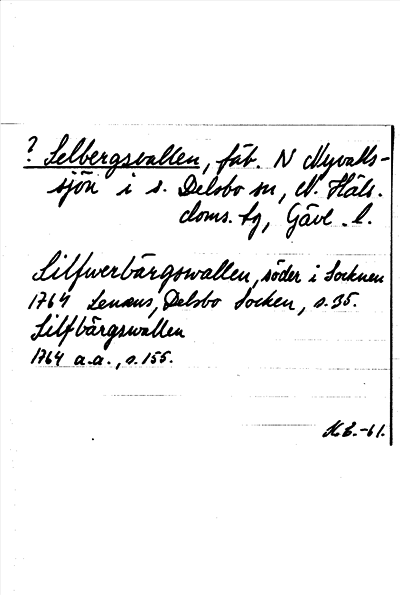 ? Selbergsvallen, fäb. N Myvalls-
sjön i s. Delsbo sn, N. Häls.
doms. tg, Gävl. l.
Silfwerbärgswallen, söder i Socknen
1764 Lenæus, Delsbo Socken, s. 35.
Silfbärgswallen
1764 a.a., s. 155.
K.E. -61.